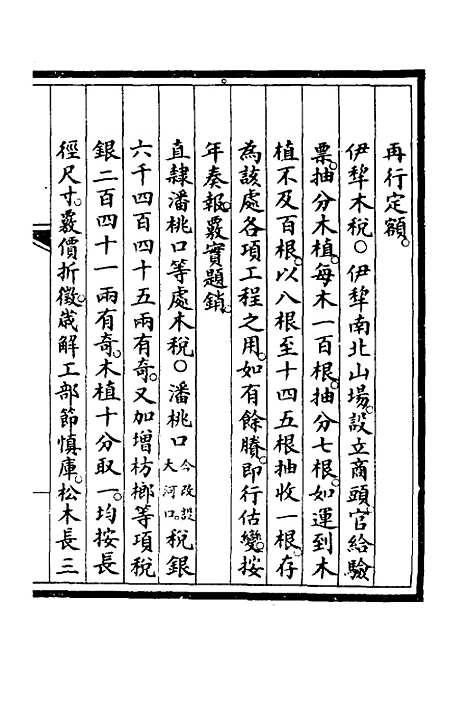 再行定額。
伊犂木稅〇伊犂南北山場。設立商頭。官給驗
票。抽分木植。每木一百根。抽分七根。如運到木
植不及百根。以八根至十四五根抽收一根。存
為該處各項工程之用。如有餘賸。即行估變。按
年奏報。覈實題銷。
直隸潘桃口等處木稅〇潘桃口今改設大河口。稅銀
六千四百四十五兩有奇。又加增枋榔等項稅
銀二百四十一兩有奇。木植十分取一。均按長
徑尺寸。覈價折徵。歲解工部節慎庫。松木長三